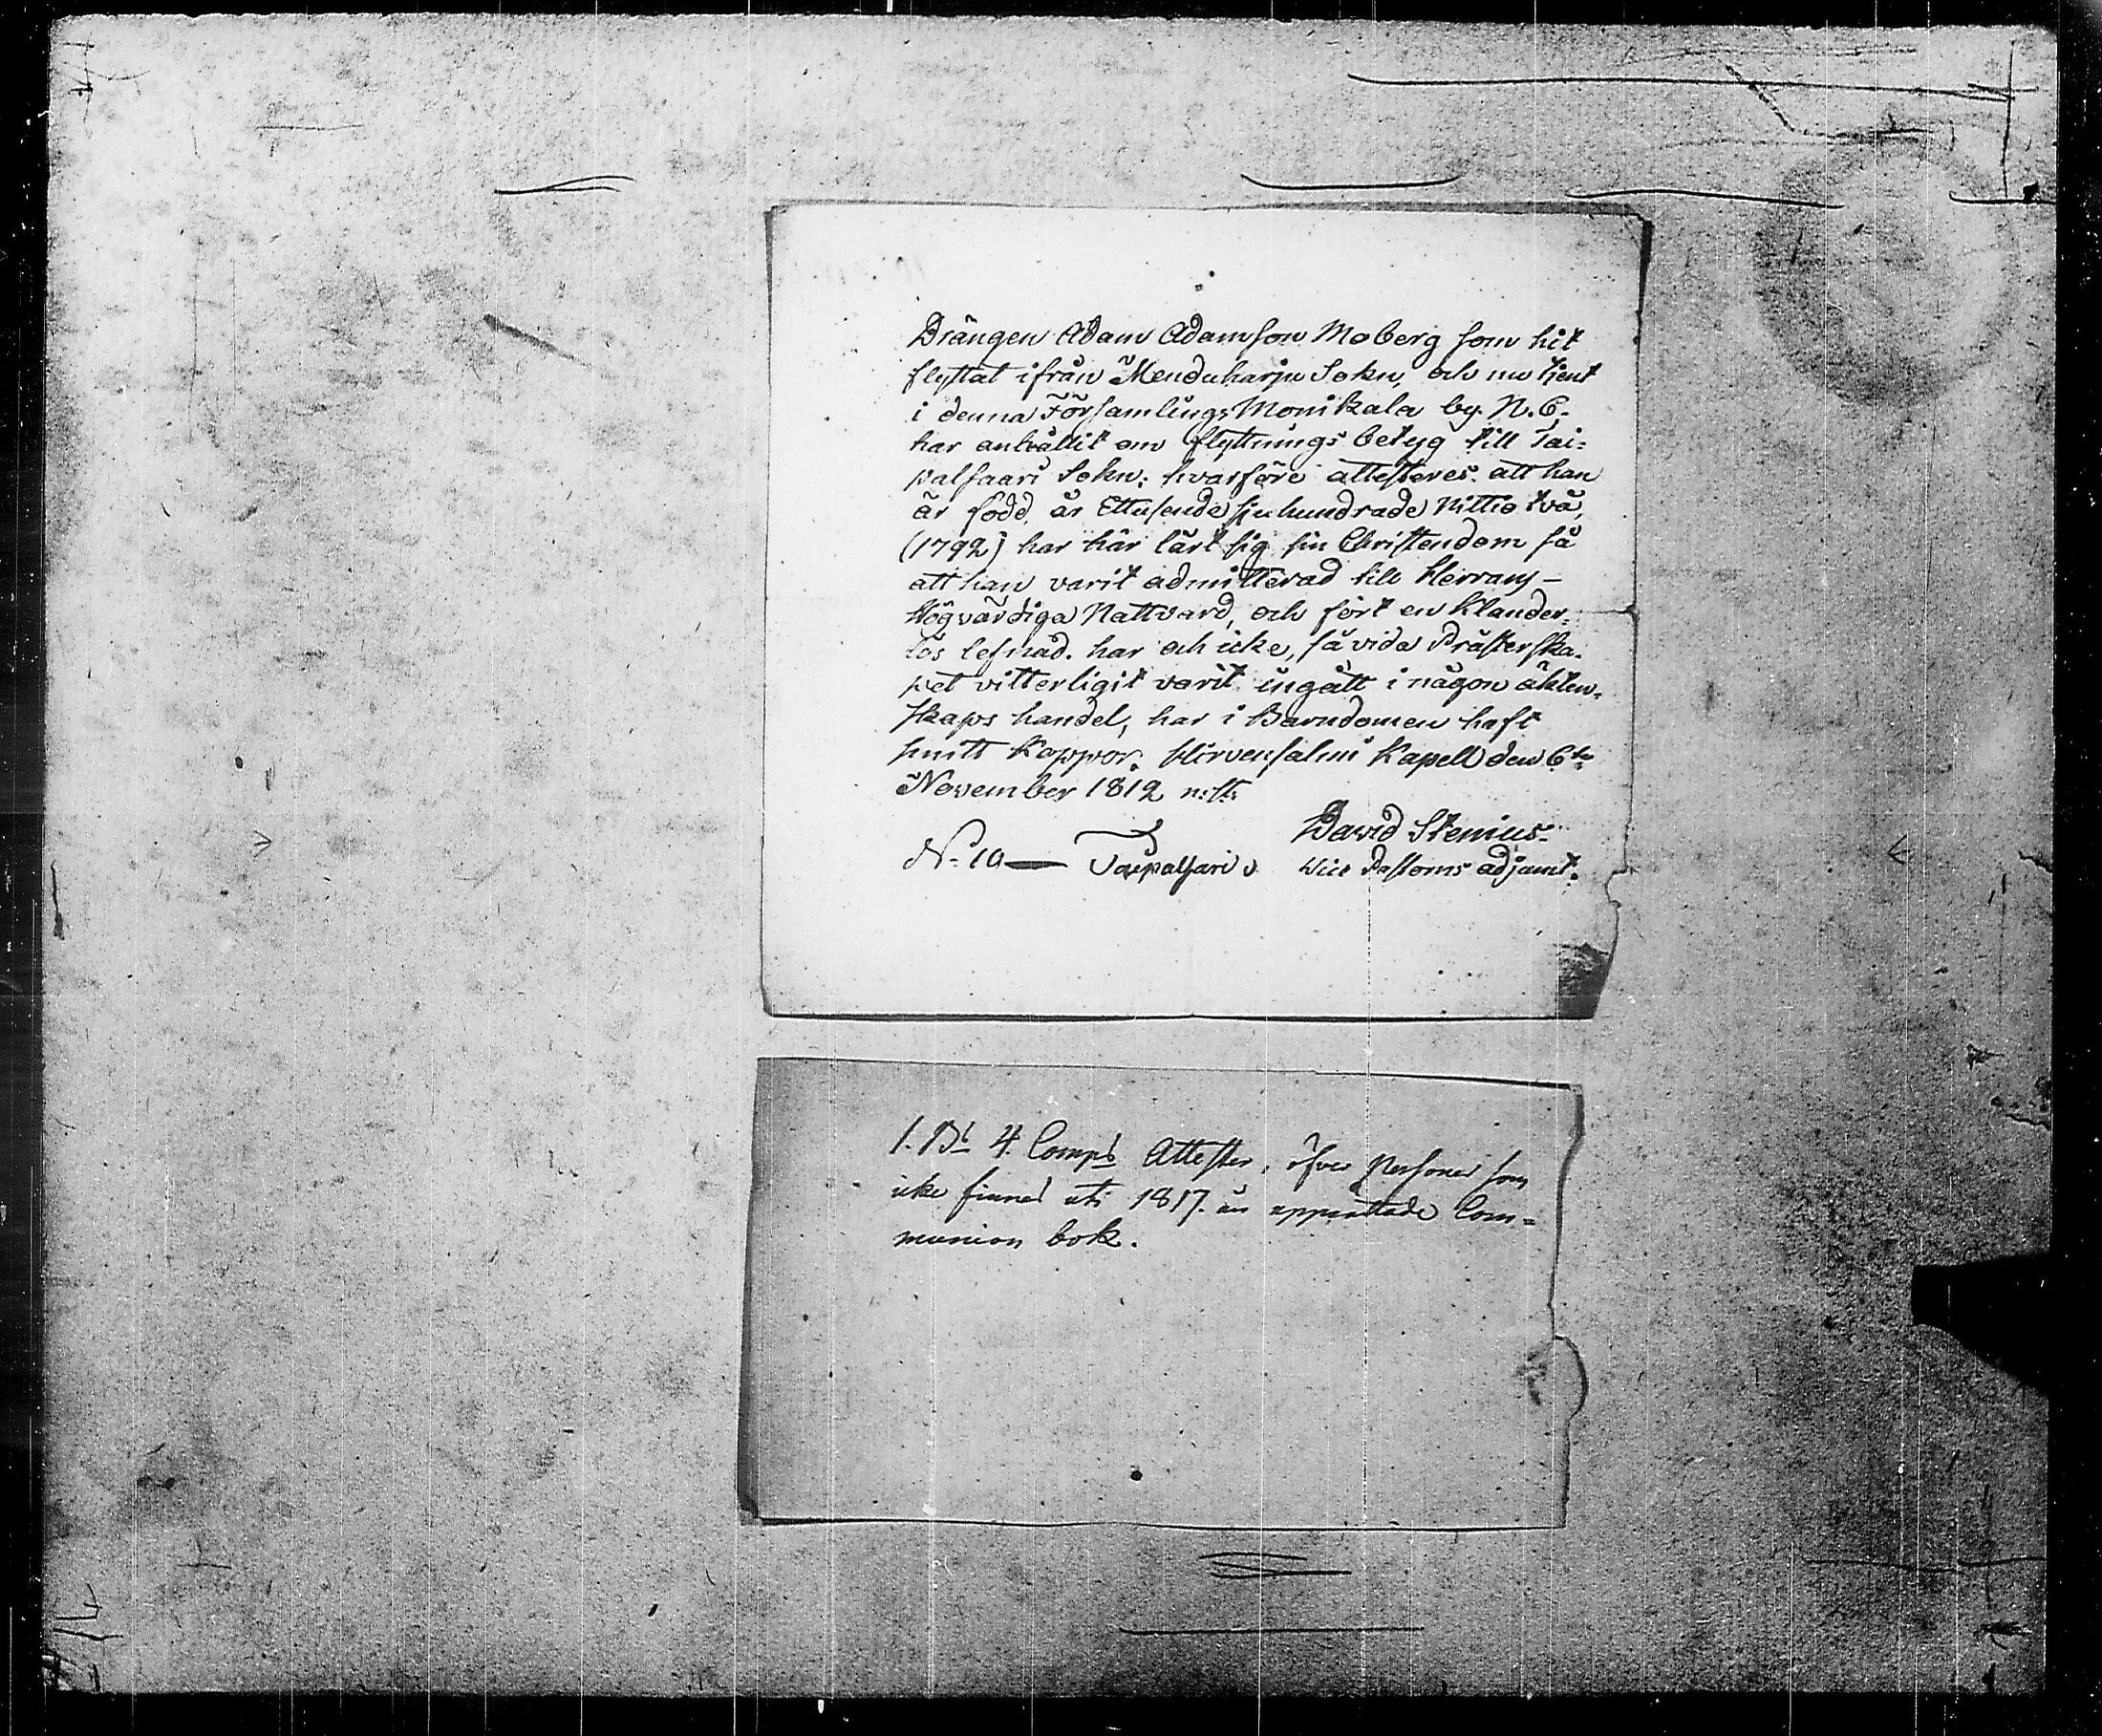 Drängen Adam Adamsson Moberg som hit
flyttat ifrån Menduharju Sokn, och nu tjent
i denna Församlings Monikala by. N. 6.
har anhållit om flyttnings betyg till Tai=
palsaari Sokn; hvarföre attesteres. att han
är född, år Ettusende sjuhundrade Nittio två,
(1792) har här lärt sig sin Christendom så
att han varit admitterad till Herrans -
Högvärdiga Nattvard, och fört en Klander=
lös lefnad. har och icke, så vida Prästerska=
pet vitterligit varit ingått i någon äkten=
skaps handel, har i Barndomen haft
smitt Koppor. Hirvensalmi Kapell den 6te
November 1812 n: st:
David Stenius.
N:o 10 — Taipalsari Vice Pastorns adjunkt.
1. Bl 4. Comps Attester, öfver Personer som
icke finnas uti 1817. års upprättade Com=
munion bok.